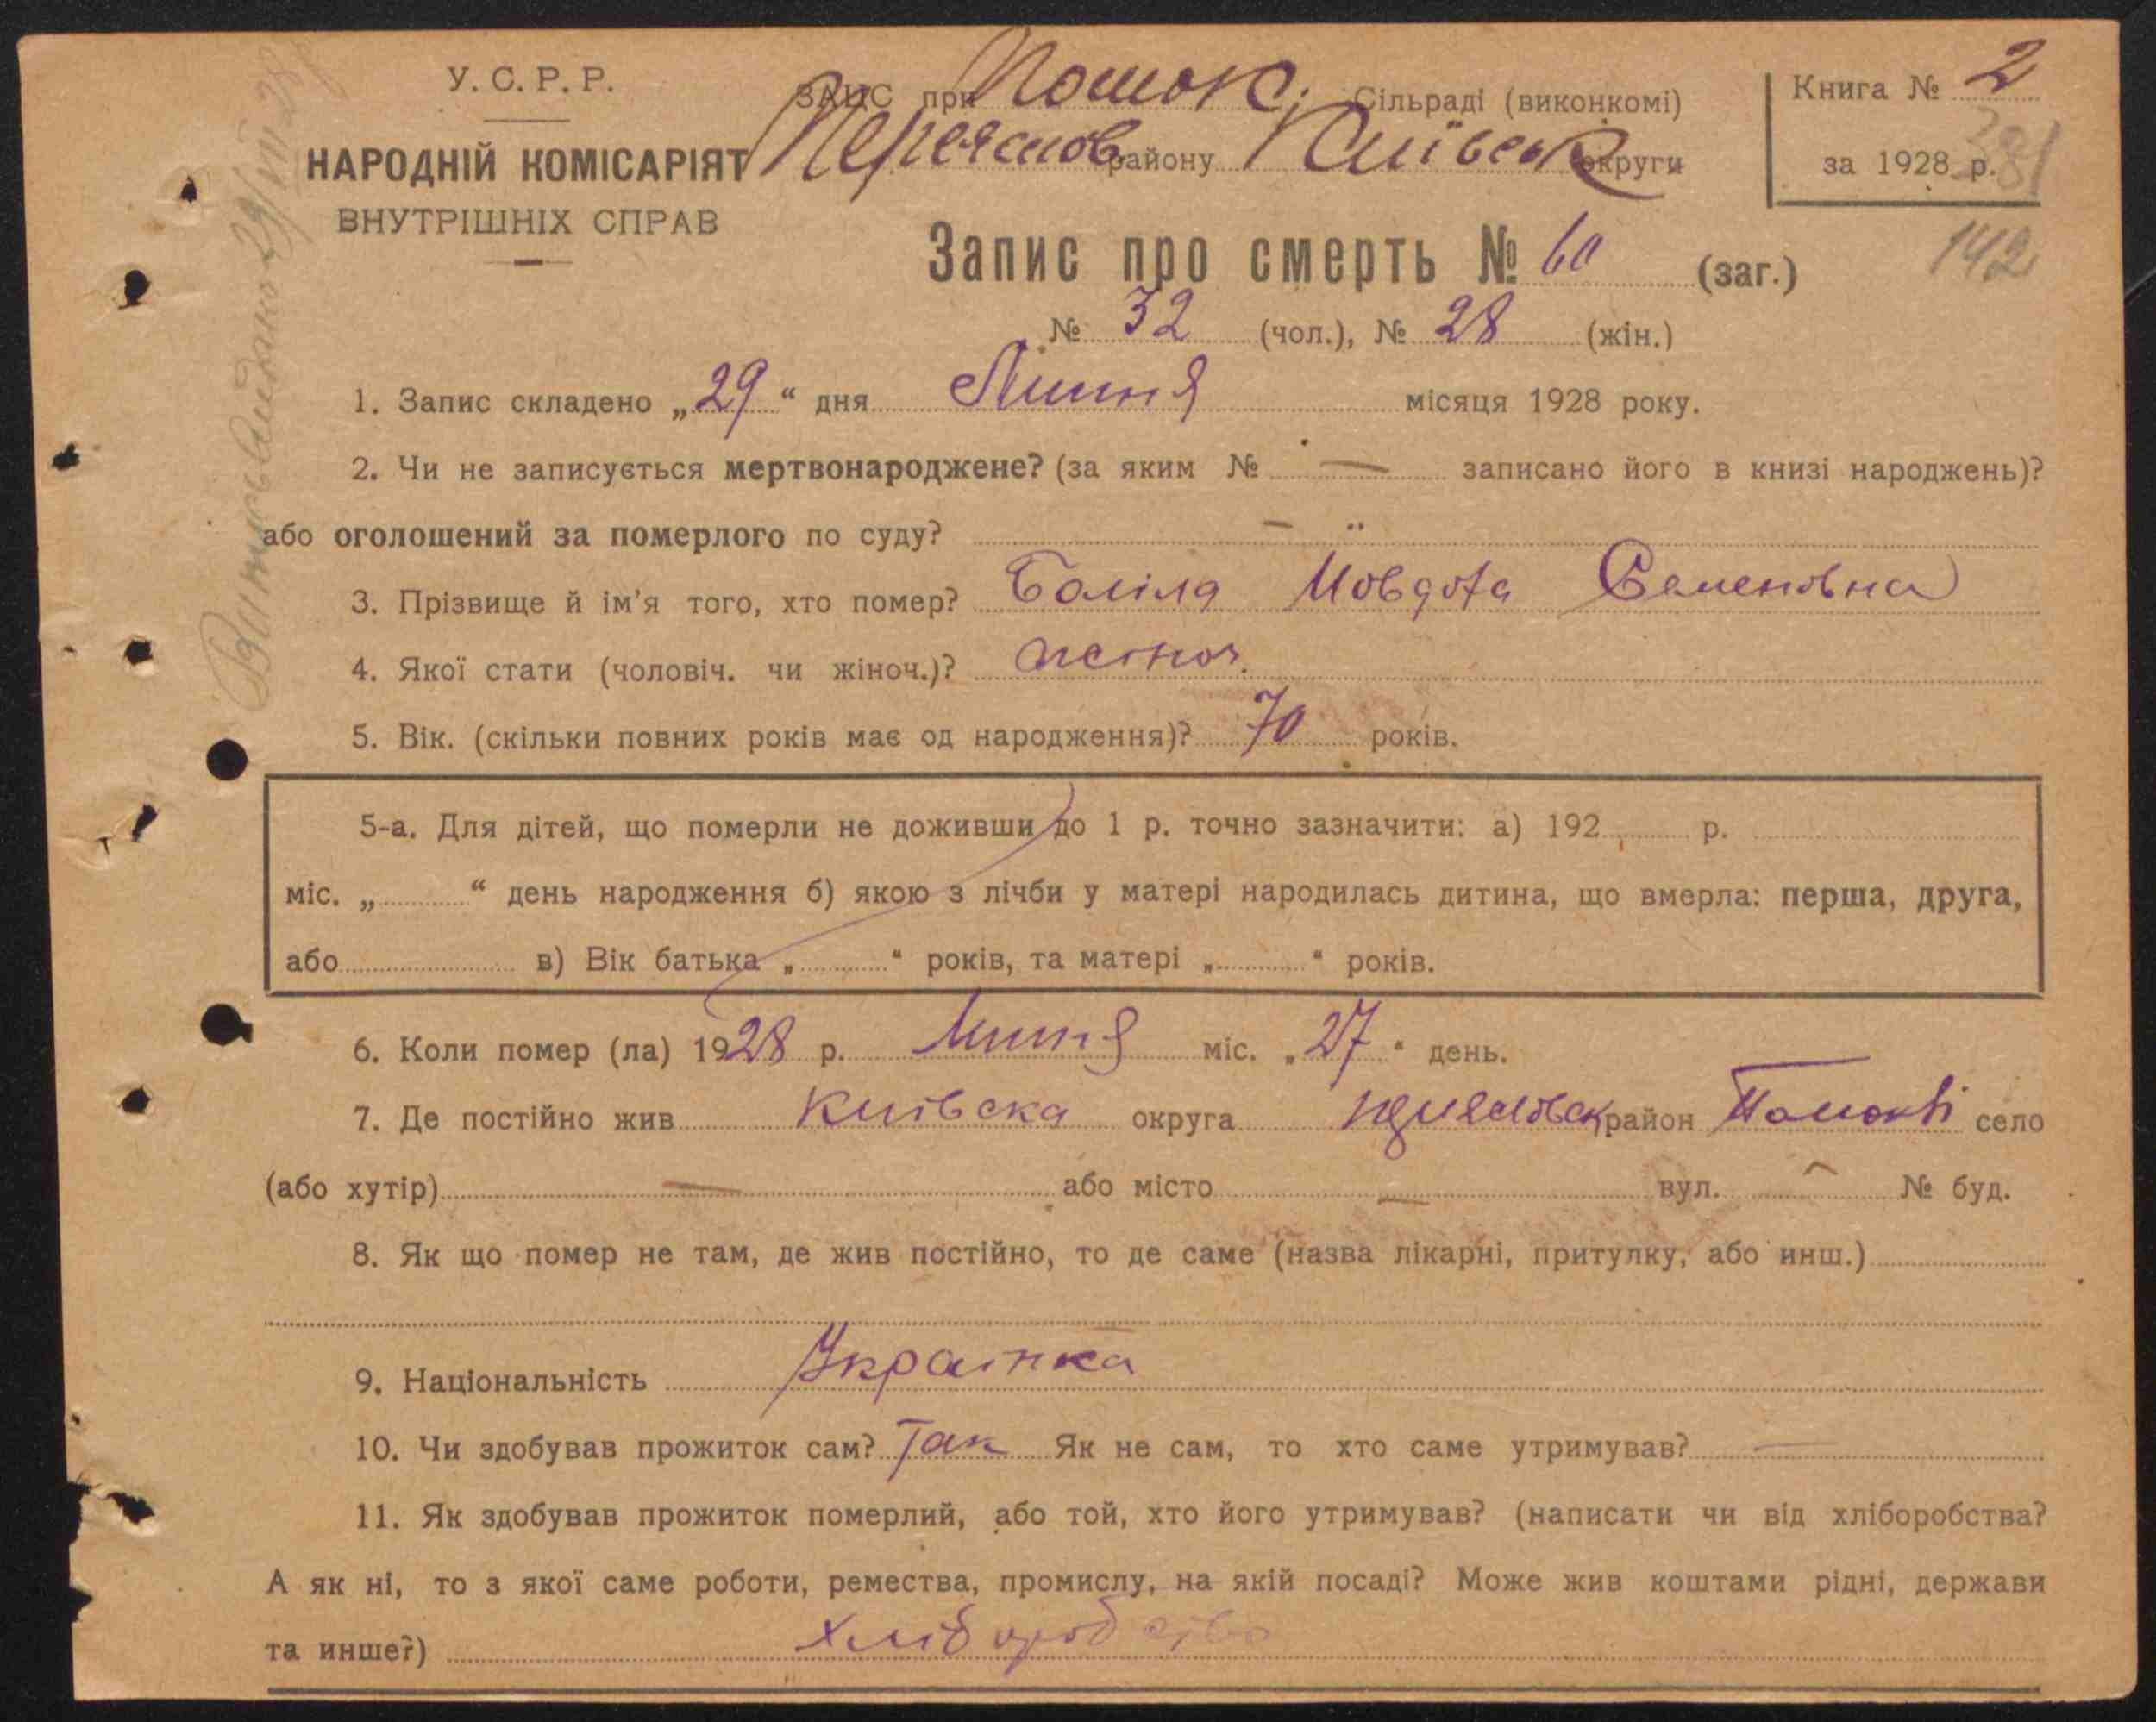 У. С. Р. Р.
НАРОДНІЙ КОМІСАРІЯТ
ВНУТРІШНІХ СПРАВ
ЗАЦС при Помок. Сільраді (виконкомі)
Переяслов району Київськ округи
Книга № 2
за 1928 р.
381
142
Запис про смерть № 60 (заг.)
№ 32 (чол.), № 28 (жін.)
1. Запис складено „29“ дня Липня місяця 1928 року.
2. Чи не записується мертвонароджене? (за яким № — записано його в книзі народжень)?
або оголошений за померлого по суду? —
3. Прізвище й ім'я того, хто помер? Боліла Мовдота Семеновна
4. Якої стати (чоловіч. чи жіноч.)? жіноч.
5. Вік. (скільки повних років має од народження)? 70 років.
5-а. Для дітей, що померли не доживши до 1 р. точно зазначити: а) 192 р.
міс. „ “ день народження б) якою з лічби у матері народилась дитина, що вмерла: перша, друга,
або в) Вік батька „ “ років, та матері „ “ років.
6. Коли помер (ла) 1928 р. Липня міс. „27“ день.
7. Де постійно жив Київска округа район Помокві село
(або хутір) — або місто — вул. — № буд.
8. Як що помер не там, де жив постійно, то де саме (назва лікарні, притулку, або инш.)
9. Національність Українка
10. Чи здобував прожиток сам? Так Як не сам, то хто саме утримував? —
11. Як здобував прожиток померлий, або той, хто його утримував? (написати чи від хліборобства?
А як ні, то з якої саме роботи, ремества, промислу, на якій посаді? Може жив коштами рідні, держави
та инше?) Хліборобство